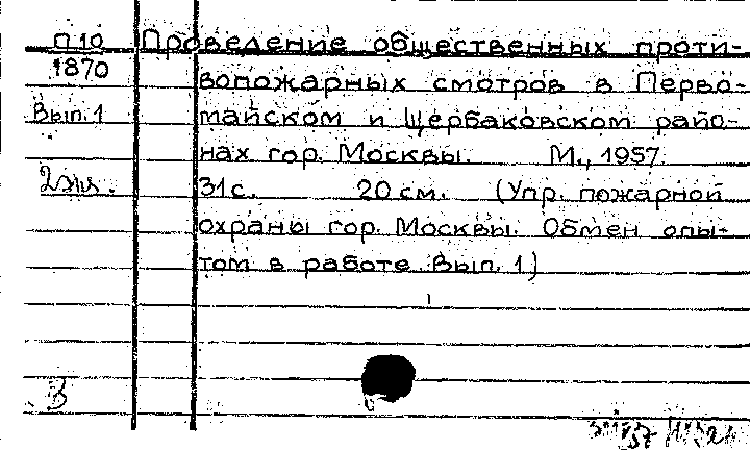 П10 Проведение общественных проти-
1870 вопожарных смотров в Перво-
Вып. 1 майском и Щербаковском райо-
нах гор. Москвы. М., 1957.
2 экз. 31 с. 20 см. (Упр. пожарной
охраны гор. Москвы. Обмен опы-
том в работе Вып. 1)
В